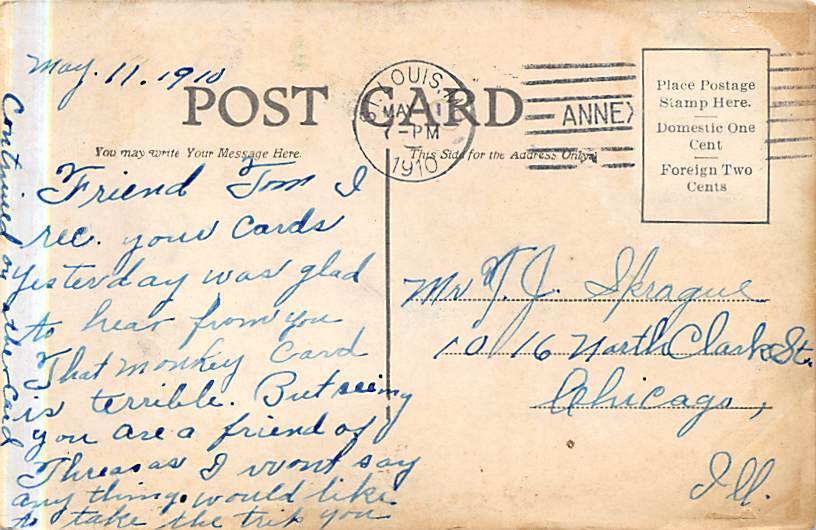 May. 11. 1910
POST CARD
ST. LOUIS, M
MAY 11
7-PM
1910
ANNEX
Place Postage
Stamp Here.
Domestic One
Cent
Foreign Two
Cents
You may write Your Message Here.
This Side for the Address Only
Friend Tom I
rec. your Cards
yesterday was glad
to hear from you
That monkey Card
is terrible. But seeing
you are a friend of
I wont say
any thing. would like
to take the trip you
Continued on other Card
Mr. T. J. Sprague
1016 North Clark St.
Chicago,
Ill.